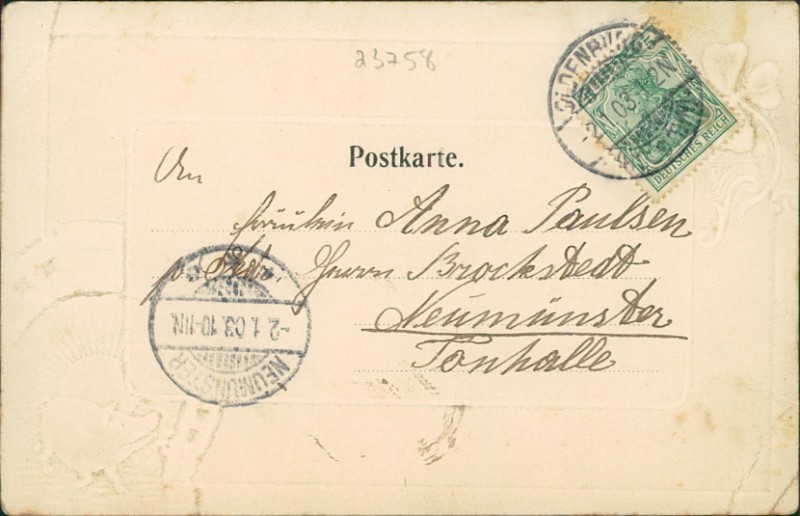 23758
OLDENBURG
2.1.03. 2N
DEUTSCHES REICH
Postkarte.
An
Fräulein Anna Paulsen
Herrn Brockstedt
Neumünster
Tonhalle
-2.1.03.10-11N.
NEUMÜNSTER